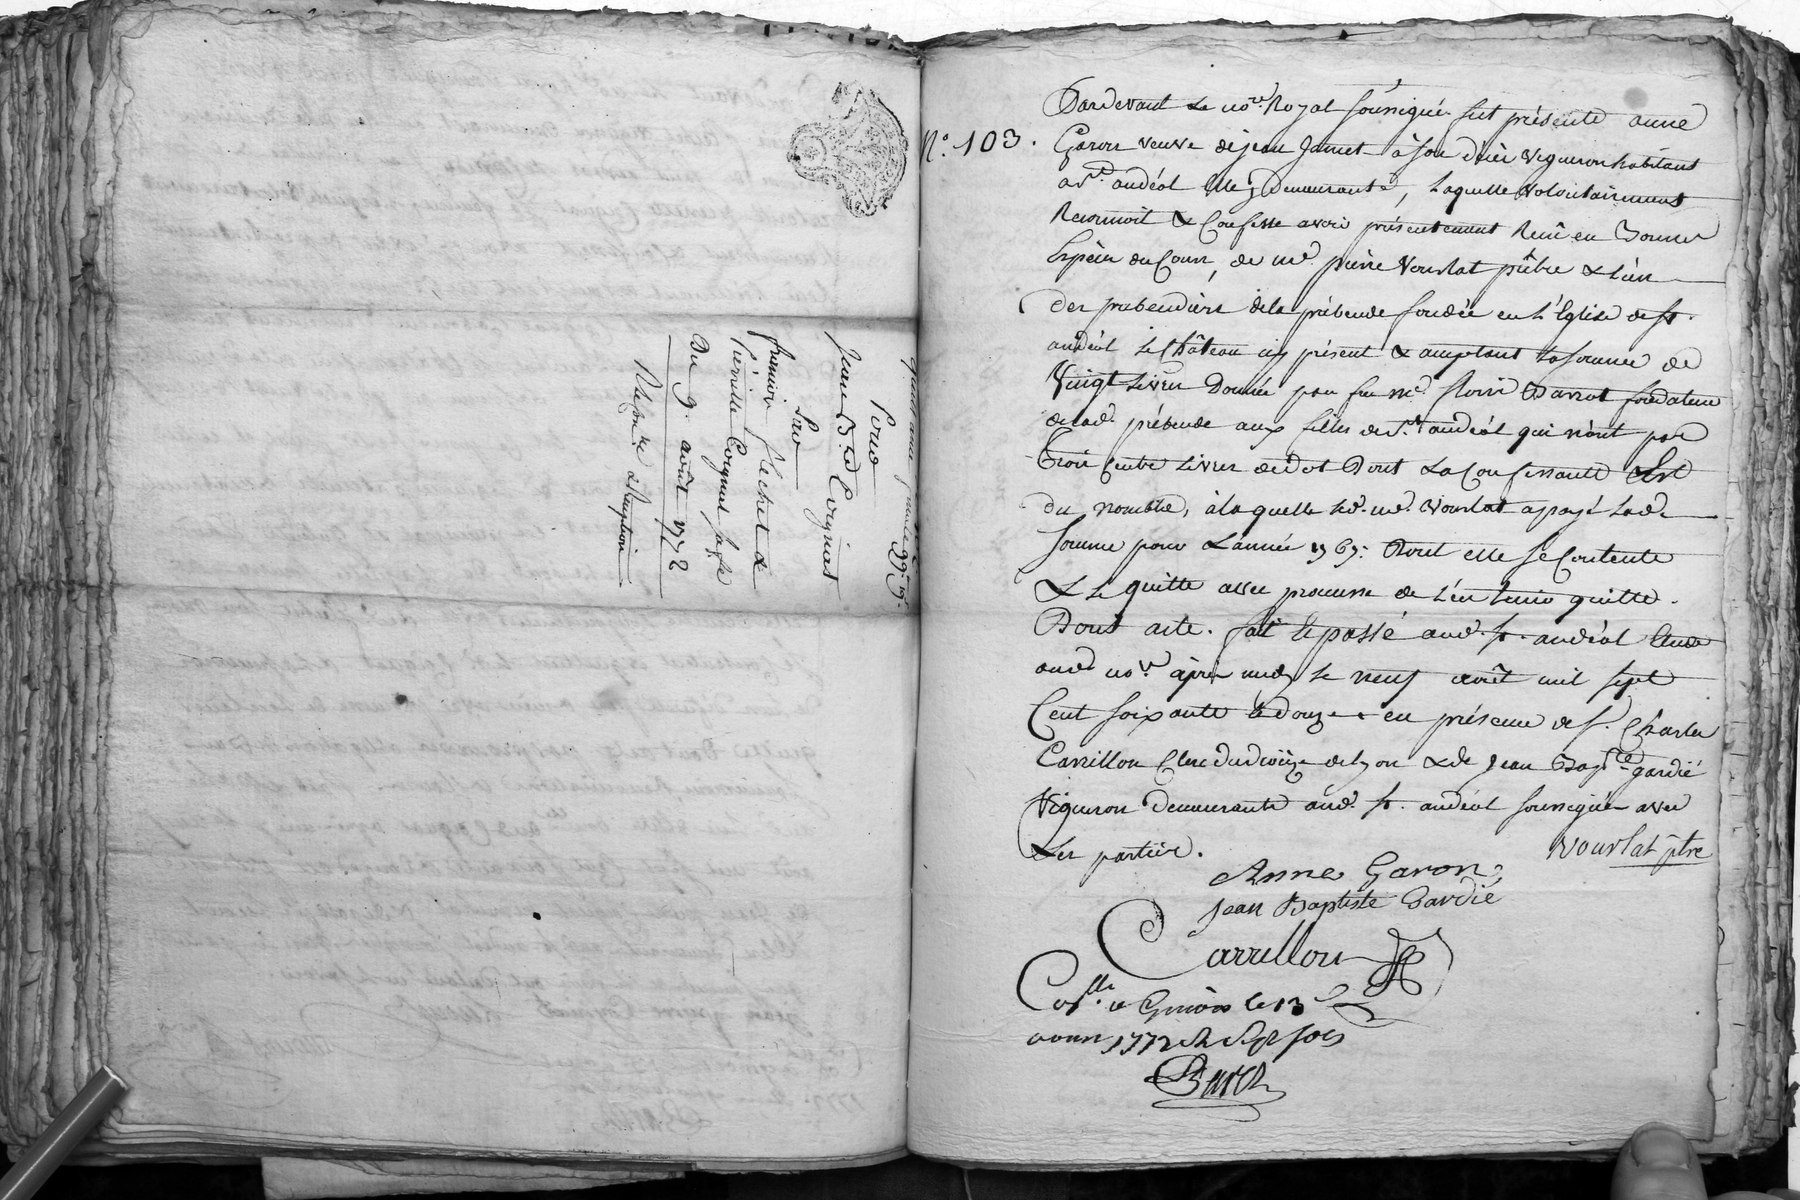 Quittance finale 99# 19s
Pour
Jean B.te Coignet
Par
francois flechet &
Pierrette Coignet sa fe
Du 9. août 1772
N.º 103.
Pardevant Le no.re Royal soussigné fut présente anne
Garon veuve de jean Jamet à son décès vigneron habitant
a S.t andéol elle y demeurante, Laquelle volontairement
Reconnoit & Confesse avoir présentement Reçu en bonnes
Espèces du Cours, de m.e pierre Vourlat prêtre & L'un
des prebendiers de la prébende fondée en L'Eglise de st.
andéol Le Château icy présent & acceptant La somme de
Vingt Livres Donnée par feu m.e fleury Barrot fondateur
de lad. prébende aux filles de S.t andéol qui n'ont pas
Trois Cents Livres de dot Dont La Confessante Est
du nombre, à laquelle led. m.e Vourlat a payé Lad.
somme pour L'année 1767: Dont elle se Contente
& Le quitte avec promesse de L'en tenir quitte.
Dont acte. fait & passé aud. st. andéol Etude
dud. no.re après midy Le neuf août mil sept
Cent soixante & douze en présence de s. Charles
Carrillon Clerc du diocèze de Lyon & de Jean Bap.te gardié
Vigneron demeurants aud. st. andéol soussignés avec
Les parties.
Vourlat ptre
Anne Garon
Jean Baptiste Gardié
Carrillon
Con.lle a Givors le 13
aoust 1772 R Sept sols